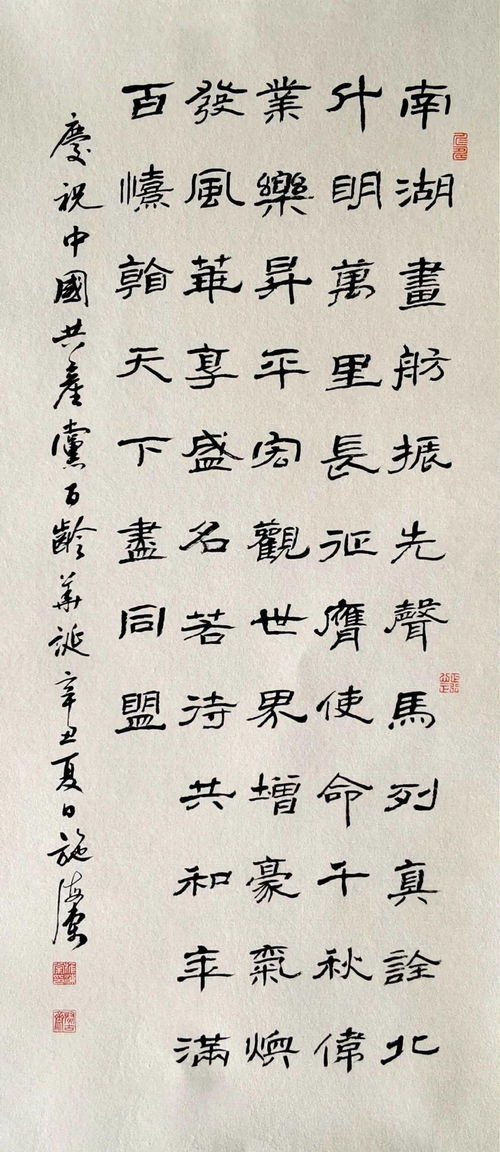 南湖畫舫振先聲馬列真詮北
斗明萬里長征膺使命千秋偉
業樂昇平宏觀世界增豪氣煥
發風華享盛名若待共和年滿
百天下盡同盟
慶祝中國共產黨百齡華誕辛丑夏日施